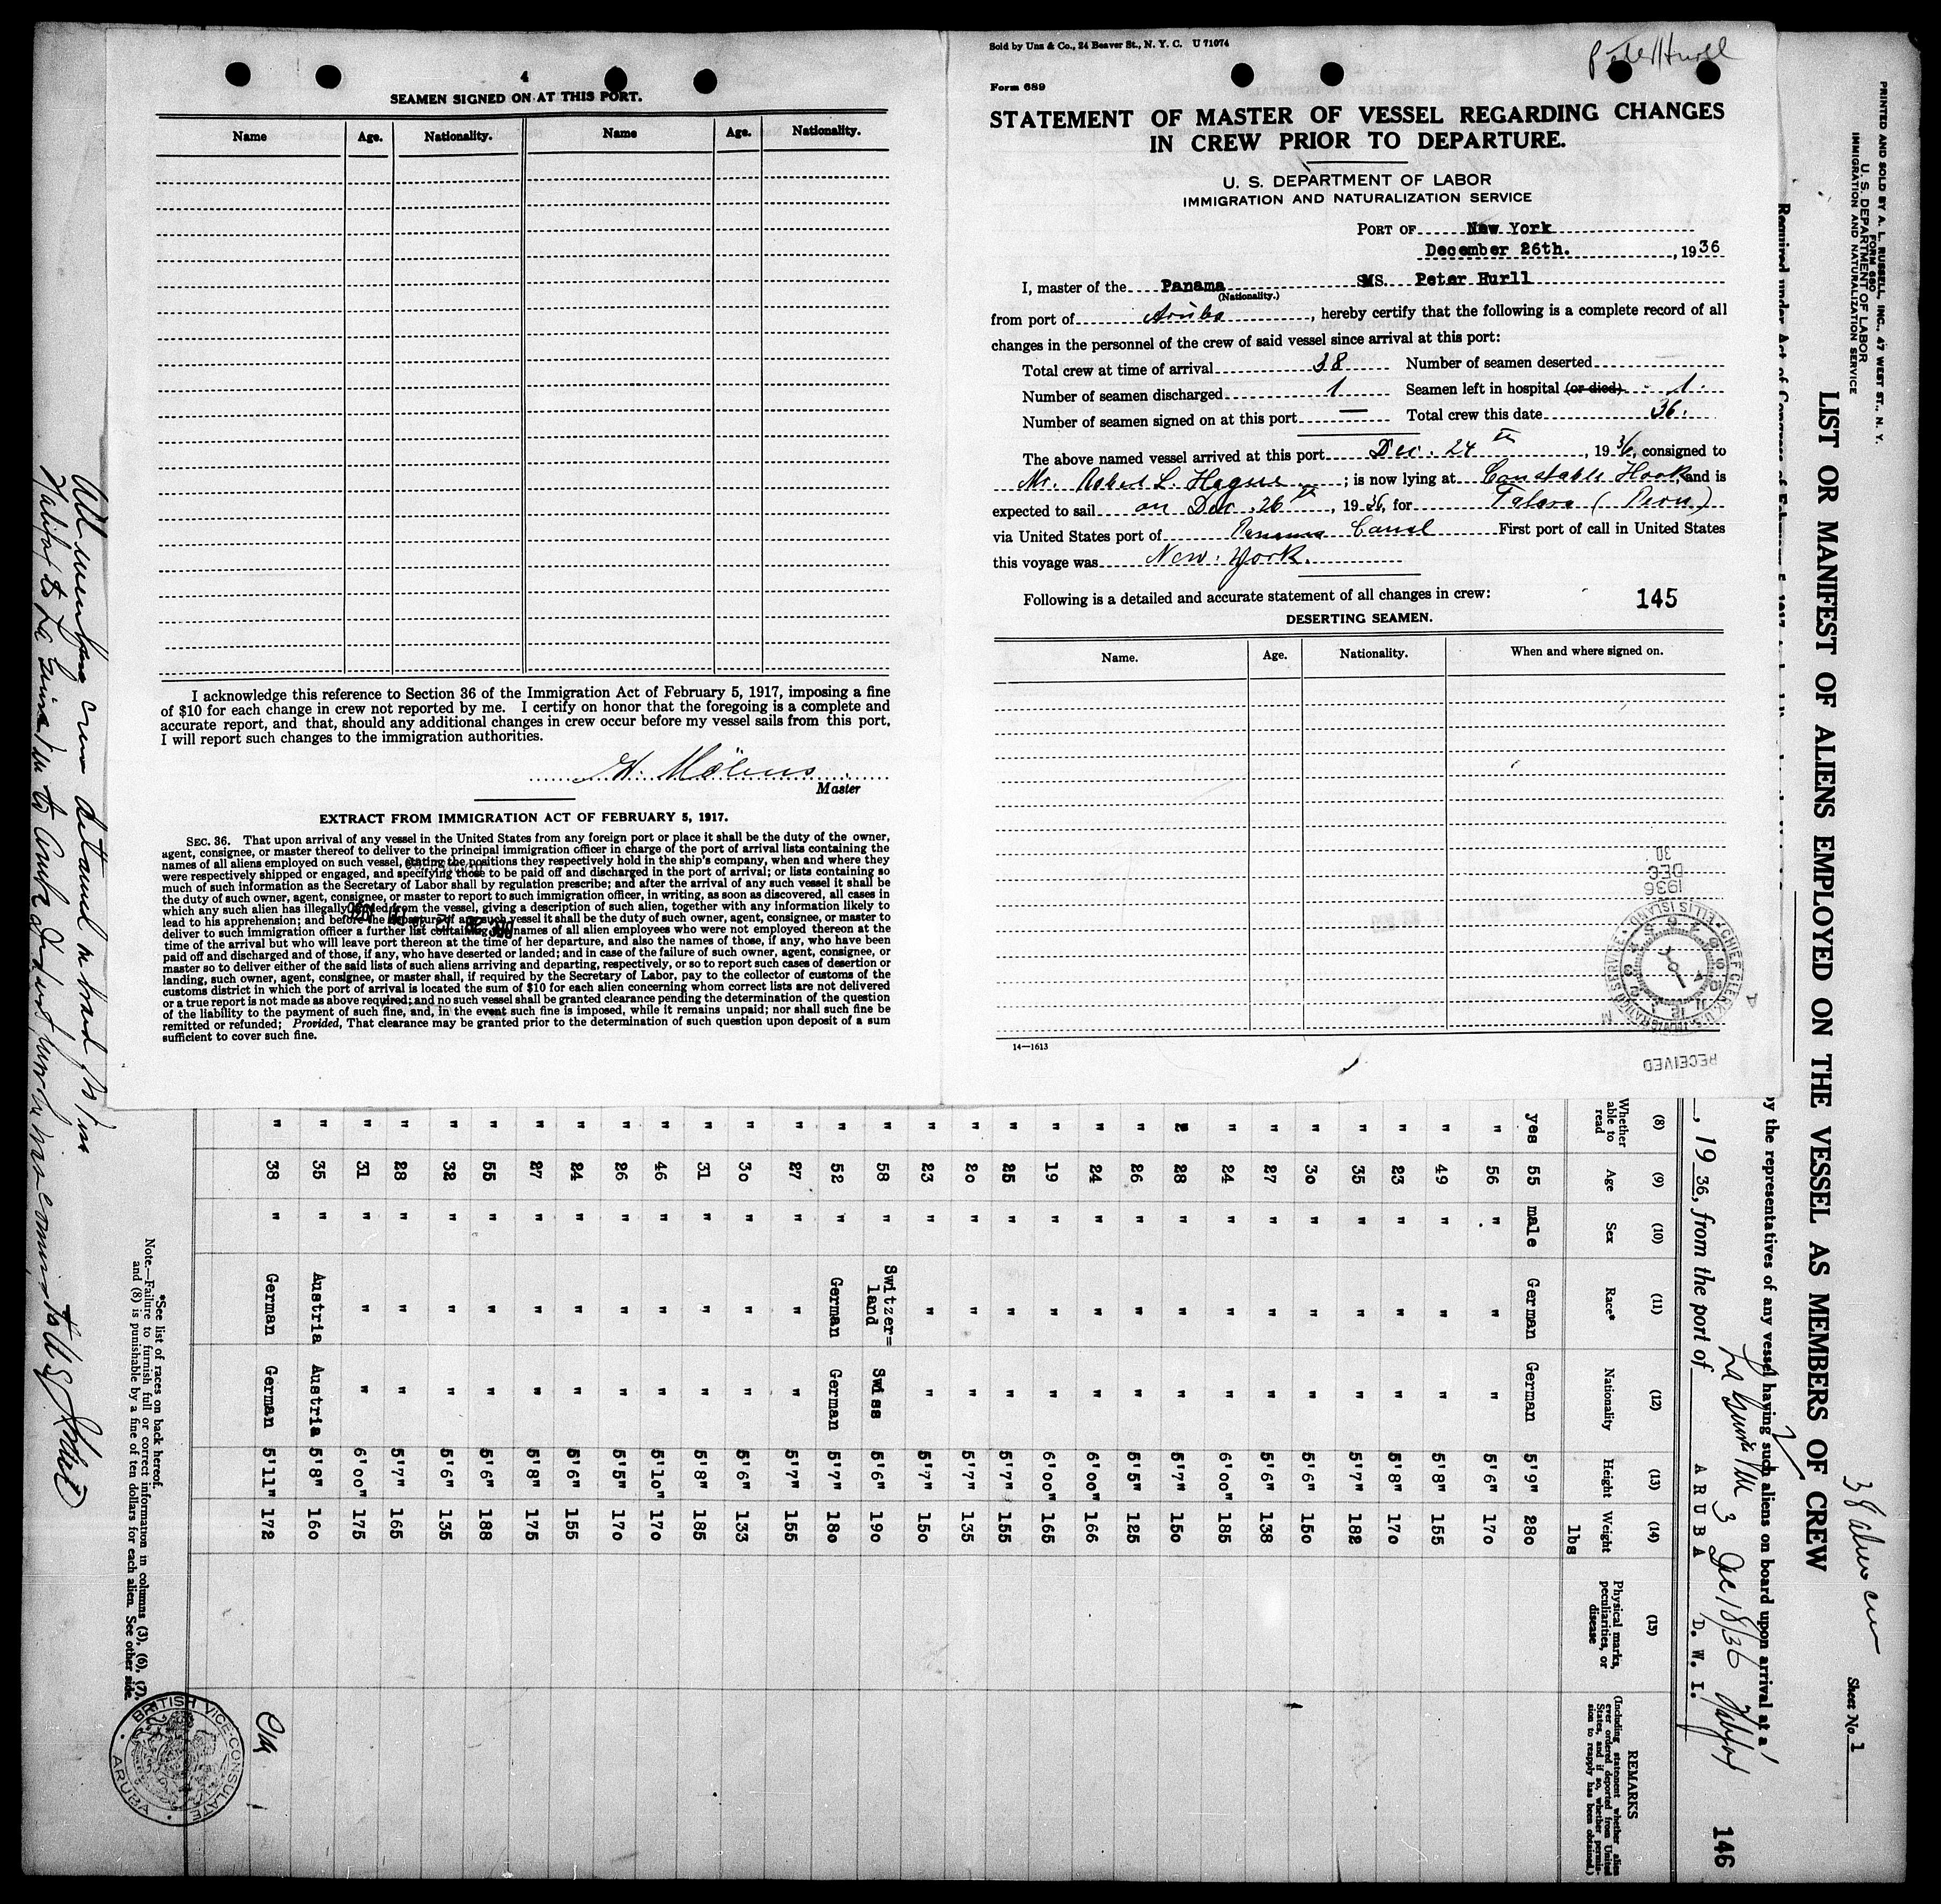 4
SEAMEN SIGNED ON AT THIS PORT.
Name Age. Nationality. Name Age. Nationality.
I acknowledge this reference to Section 36 of the Immigration Act of February 5, 1917, imposing a fine
of $10 for each change in crew not reported by me. I certify on honor that the foregoing is a complete and
accurate report, and that, should any additional changes in crew occur before my vessel sails from this port,
I will report such changes to the immigration authorities.
Master
EXTRACT FROM IMMIGRATION ACT OF FEBRUARY 5, 1917.
SEC. 36. That upon arrival of any vessel in the United States from any foreign port or place it shall be the duty of the owner,
agent, consignee, or master thereof to deliver to the principal immigration officer in charge of the port of arrival lists containing the
names of all aliens employed on such vessel, stating the positions they respectively hold in the ship's company, when and where they
were respectively shipped or engaged, and specifying those to be paid off and discharged in the port of arrival; or lists containing so
much of such information as the Secretary of Labor shall by regulation prescribe; and after the arrival of any such vessel it shall be
the duty of such owner, agent, consignee, or master to report to such immigration officer, in writing, as soon as discovered, all cases in
which any such alien has illegally landed from the vessel, giving a description of such alien, together with any information likely to
lead to his apprehension; and before the departure of any such vessel it shall be the duty of such owner, agent, consignee, or master to
deliver to such immigration officer a further list containing the names of all alien employees who were not employed thereon at the
time of the arrival but who will leave port thereon at the time of her departure, and also the names of those, if any, who have been
paid off and discharged and of those, if any, who have deserted or landed; and in case of the failure of such owner, agent, consignee, or
master so to deliver either of the said lists of such aliens arriving and departing, respectively, or so to report such cases of desertion or
landing, such owner, agent, consignee, or master shall, if required by the Secretary of Labor, pay to the collector of customs of the
customs district in which the port of arrival is located the sum of $10 for each alien concerning whom correct lists are not delivered
or a true report is not made as above required; and no such vessel shall be granted clearance pending the determination of the question
of the liability to the payment of such fine, and, in the event such fine is imposed, while it remains unpaid; nor shall such fine be
remitted or refunded; Provided, That clearance may be granted prior to the determination of such question upon deposit of a sum
sufficient to cover such fine.
Sold by Unz & Co., 24 Beaver St., N. Y. C. U 71074
Peter Hurll
Form 689
STATEMENT OF MASTER OF VESSEL REGARDING CHANGES
IN CREW PRIOR TO DEPARTURE.
U. S. DEPARTMENT OF LABOR
IMMIGRATION AND NATURALIZATION SERVICE
PORT OF New York
December 26th. , 1936
I, master of the Panama MS. Peter Hurll
(Nationality.)
from port of Aruba , hereby certify that the following is a complete record of all
changes in the personnel of the crew of said vessel since arrival at this port:
Total crew at time of arrival 38 Number of seamen deserted —
Number of seamen discharged 1 Seamen left in hospital (or died) 1.
Number of seamen signed on at this port — Total crew this date 36.
The above named vessel arrived at this port Dec. 24th , 1936, consigned to
Mr. Robert L. Hague ; is now lying at Constable Hook, and is
expected to sail on Dec. 26th , 1936, for Talara (Peru)
via United States port of Panama Canal First port of call in United States
this voyage was New York.
Following is a detailed and accurate statement of all changes in crew:
145
DESERTING SEAMEN.
Name. Age. Nationality. When and where signed on.
14—1613
1936 DEC 30
ELLIS ISLAND
RECEIVED
PRINTED AND SOLD BY A. L. RUSSELL, INC., 47 WEST ST., N. Y.
FORM 680
U. S. DEPARTMENT OF LABOR
IMMIGRATION AND NATURALIZATION SERVICE
Sheet No. 1
LIST OR MANIFEST OF ALIENS EMPLOYED ON THE VESSEL AS MEMBERS OF CREW
by the representatives of any vessel having such aliens on board upon arrival at a
, 1936, from the port of ARUBA D. W. I.
Dec 18/36
146
(8) (9) (10) (11) (12) (13) (14) (15)
Whether able to read Age Sex Race* Nationality Height Weight lbs Physical marks, peculiarities, or disease REMARKS (Including statement whether alien ever ordered deported from United States, and if so, whether permission to reapply has been obtained.)
yes 55 male German German 5'9" 280
" 56 " " " 5'6" 170
" 49 " " " 5'8" 155
" 23 " " " 5'8" 170
" 35 " " " 5'7" 182
" 30 " " " 5'6" 150
" 27 " " " 5'6" 138
" 24 " " " 6'00" 185
" 28 " " " 5'7" 150
" 26 " " " 5'5" 125
" 24 " " " 6'00" 166
" 19 " " " 6'00" 165
" 25 " " " 5'7" 155
" 20 " " " 5'7" 135
" 23 " " " 5'7" 150
" 58 " Switzer=land Swiss 5'6" 190
" 52 " German German 5'7" 180
" 27 " " " 5'7" 155
" 30 " " " 5'6" 133
" 31 " " " 5'8" 185
" 46 " " " 5'10" 170
" 26 " " " 5'5" 170
" 24 " " " 5'6" 155
" 27 " " " 5'8" 175
" 55 " " " 5'6" 188
" 32 " " " 5'6" 135
" 28 " " " 5'7" 165
" 31 " " " 6'00" 175
" 35 " Austria Austria 5'8" 160
" 38 " German German 5'11" 172
*See list of races on back hereof.
Note.—Failure to furnish full or correct information in columns (3), (6), (7),
and (8) is punishable by a fine of ten dollars for each alien. See other side.
BRITISH VICE-CONSULATE
ARUBA